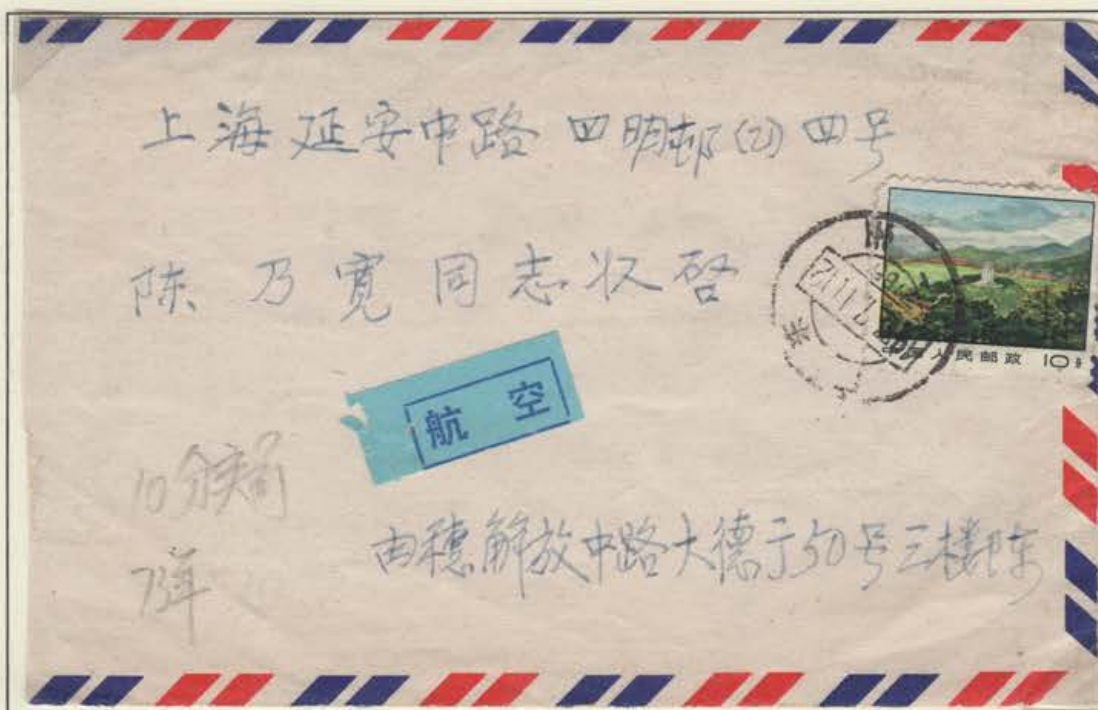 上海延安中路四明邨(2)四号
陈乃宽同志收启
中国人民邮政 10分
航空
10分
73年
由穗解放中路大德于50号三楼陈